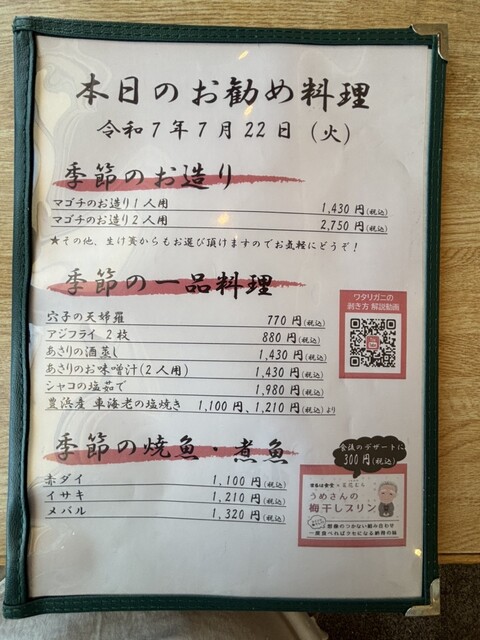 本日のお勧め料理
令和7年7月22日（火）
季節のお造り
マゴチのお造り1人用 1,430円(税込)
マゴチのお造り2人用 2,750円(税込)
★その他、生け簀からもお選び頂けますのでお気軽にどうぞ！
季節の一品料理
穴子の天婦羅 770円(税込)
アジフライ 2枚 880円(税込)
あさりの酒蒸し 1,430円(税込)
あさりのお味噌汁(2人用) 1,430円(税込)
シャコの塩茹で 1,980円(税込)
豊浜産 車海老の塩焼き 1,100円、1,210円(税込)より
ワタリガニの
剥き方 解説動画
季節の焼魚・煮魚
赤ダイ 1,100円(税込)
イサキ 1,210円(税込)
メバル 1,320円(税込)
食後のデザートに
300円(税込)
うめさんの
梅干しプリン
想像のつかない組み合わせ
一度食べればクセになる納得の味